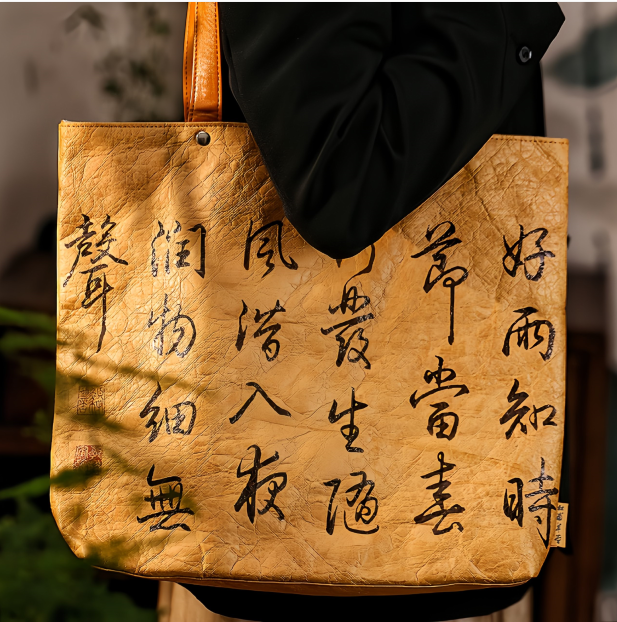 好雨知時
節當春
發生隨
風潜入夜
潤物細無
聲